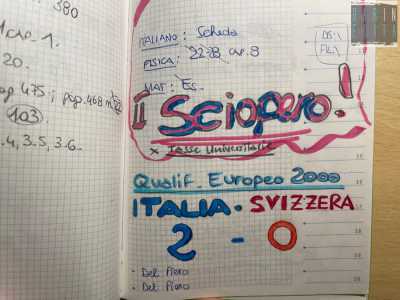 380
cap. 1.
20.
pag 475; pag. 468 n°
103
.4, 3.5, 3.6.
ITALIANO: Scheda
FISICA: 22-23 cap. 8
MAT: Es.
Il Sciopero!
x Tasse Universitarie
Qualif. Europeo 2000
ITALIA - SVIZZERA
2 - 0
- Del Piero
- Del Piero